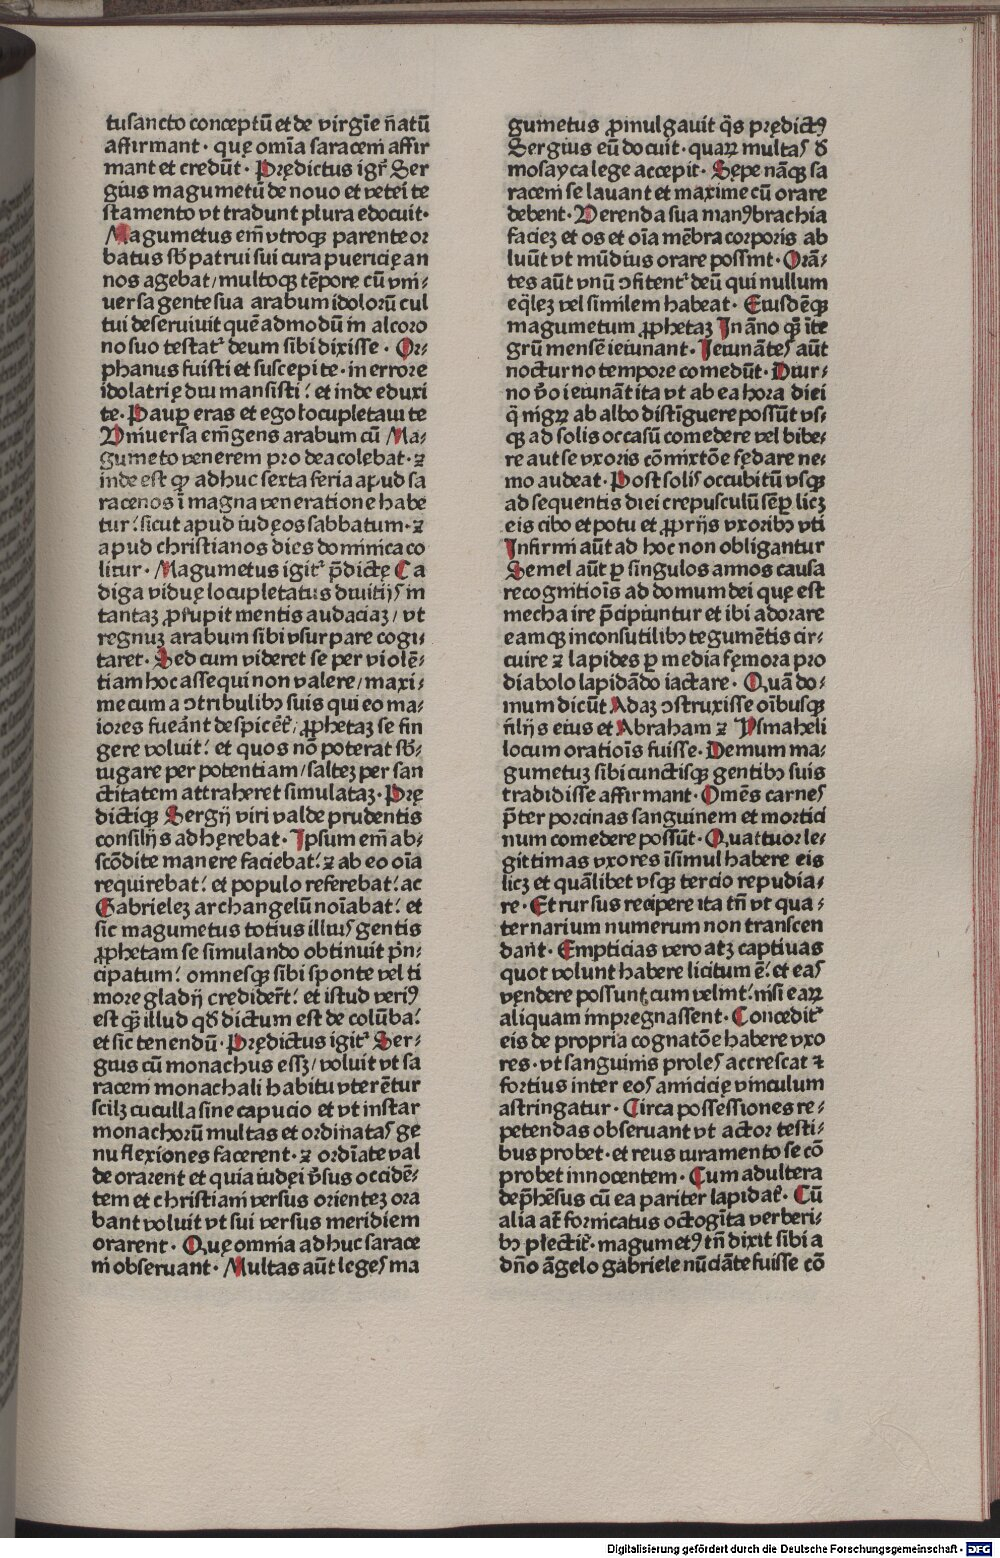 tusancto conceptū et de virgīe n̄atū
affirmant · quę omīa saraceni affir
mant et credūt · Prędictus igr̄ Ser
gius magumetū de nouo et veteri te
stamento vt tradunt plura edocuit·
Magumetus em̄ vtroqꝫ parente or
batus sb̄ patrui sui cura puericię an
nos agebat / multoqꝫ tēpore cū vni⸗
uersa gente sua arabum idolorū cul
tui deseruiuit quēadmodū in alcoro
no suo testatᷣ deum sibi dixisse · Or⸗
phanus fuisti et suscepi te · in errore
idolatrię diu mansisti? et inde eduxi
te · Pauꝑ eras et ego locupletaui te
Vniuersa em̄ gens arabum cū Ma⸗
gumeto venerem pro dea colebat · ⁊
inde est ꝙ adhuc sexta feria apud sa
racenos ī magna veneratione habe
tur? sicut apud iudęos sabbatum · ⁊
apud christianos dies dominica co
litur · Magumetus igitᷣ p̄dictę Ca
diga viduę locupletatus diuitijs in
tantaꝫ ꝓrupit mentis audaciaꝫ / vt
regnuꝫ arabum sibi vsurpare cogi
taret · Sed cum videret se per violē⸗
tiam hoc assequi non valere / maxi⸗
me cum a ↄtribulibꝰ suis qui eo ma⸗
iores fuerānt despicēt̄ / ꝓphetaꝫ se fin
gere voluit? et quos nō poterat sb̄⸗
iugare per potentiam / salteꝫ per san
ctitatem attraheret simulataꝫ · Prę
dictiqꝫ Sergij viri valde prudentis
consilijs adhęrebat · Ipsum em̄ ab⸗
scōdite manere faciebat? ⁊ ab eo oīa
requirebat? et populo referebat? ac
Gabrieleꝫ archangelū noīabat? et
sic magumetus totius illius gentis
ꝓphetam se simulando obtinuit p̄n⸗
cipatum? omnesqꝫ sibi sponte vel ti
more gladij credider̄t? et istud veriꝰ
est qꝫ̄ illud qd̄ dictum est de colūba?
et sic tenendū · Prędictus igitᷣ Ser⸗
gius cū monachus essꝫ / voluit vt sa
raceni monachali habitu vterētur
scilꝫ cuculla sine capucio et vt instar
monachorū multas et ordinatas ge
nuflexiones facerent · ⁊ ordīate val
de orarent et quia iudęi v̄sus occidē⸗
tem et christiani versus orienteꝫ ora
bant voluit vt sui versus meridiem
orarent · Quę omnia adhuc sarace
ni obseruant · Multas aūt leges ma
gumetus ꝓmulgauit q̄s prędictꝰ
Sergius eū docuit · quaꝝ multas d̄
mosayca lege accepit · Sępe nāqꝫ sa
raceni se lauant et maxime cū orare
debent · Verenda sua manꝰ brachia
facieꝫ et os et oīa mēbra corporis ab
luūt vt mūdius orare possint · Orā⸗
tes aūt vnū ↄfitentᷣ deū qui nullum
eq̄leꝫ vel similem habeat · Eiusdēqꝫ
magumetum ꝓphetaꝫ In āno qꝫ̄ īte
grū mensē ieiunant · Ieiunātes aūt
nocturno tempore comedūt · Diur⸗
no v̄o ieiunāt ita vt ab ea hora diei
q̄ nigꝝ ab albo distīguere possūt vs⸗
qꝫ ad solis occasū comedere vel bibe⸗
re aut se vxoris cōmixtōe fędare ne⸗
mo audeat · Post solis occubitū vsqꝫ
ad sequentis diei crepusculū sēꝑ licꝫ
eis cibo et potu et ꝓprijs vxoribꝰ vti
Infirmi aūt ad hoc non obligantur
Semel aūt ꝑ singulos annos causa
recognitiois ad domum dei quę est
mecha ire p̄cipiuntur et ibi adorare
eamqꝫ inconsutilibꝰ tegumētis cir⸗
cuire ⁊ lapides ꝑ media fęmora pro
diabolo lapidādo iactare · Quā do⸗
mum dicūt Adaꝫ ↄstruxisse oībusqꝫ
filijs eius et Abraham ⁊ Ysmaheli
locum oratiois fuisse · Demum ma⸗
gumetuꝫ sibi cunctisqꝫ gentibꝰ suis
tradidisse affirmant · Omēs carnes
p̄ter porcinas sanguinem et mortici
num comedere possūt · Quattuor le⸗
gittimas vxores īsimul habere eis
licꝫ et quālibet vsqꝫ tercio repudia⸗
re · Et rursus recipere ita tn̄ vt qua⸗
ternarium numerum non transcen
dan̄t · Empticias vero atꝫ captiuas
quot volunt habere licitum ē? et eas
vendere possunt cum velint? nisi eaꝝ
aliquam impregnassent · Conceditᷣ
eis de propria cognatōe habere vxo
res · vt sanguinis proles accrescat ⁊
fortius inter eos amicicię vinculum
astringatur · Circa possessiones re⸗
petendas obseruant vt actor testi⸗
bus probet · et reus iuramento se cō
probet innocentem · Cum adultera
dep̄hēsus cū ea pariter lapidat̄ · Cū
alia at̄ fornicatus octogīta verberi⸗
bꝰ plectit̄ · magumetꝰ tn̄ dixit sibi a
dn̄o āgelo gabriele nūciāte fuisse cō
Digitalisierung gefördert durch die Deutsche Forschungsgemeinschaft · DFG